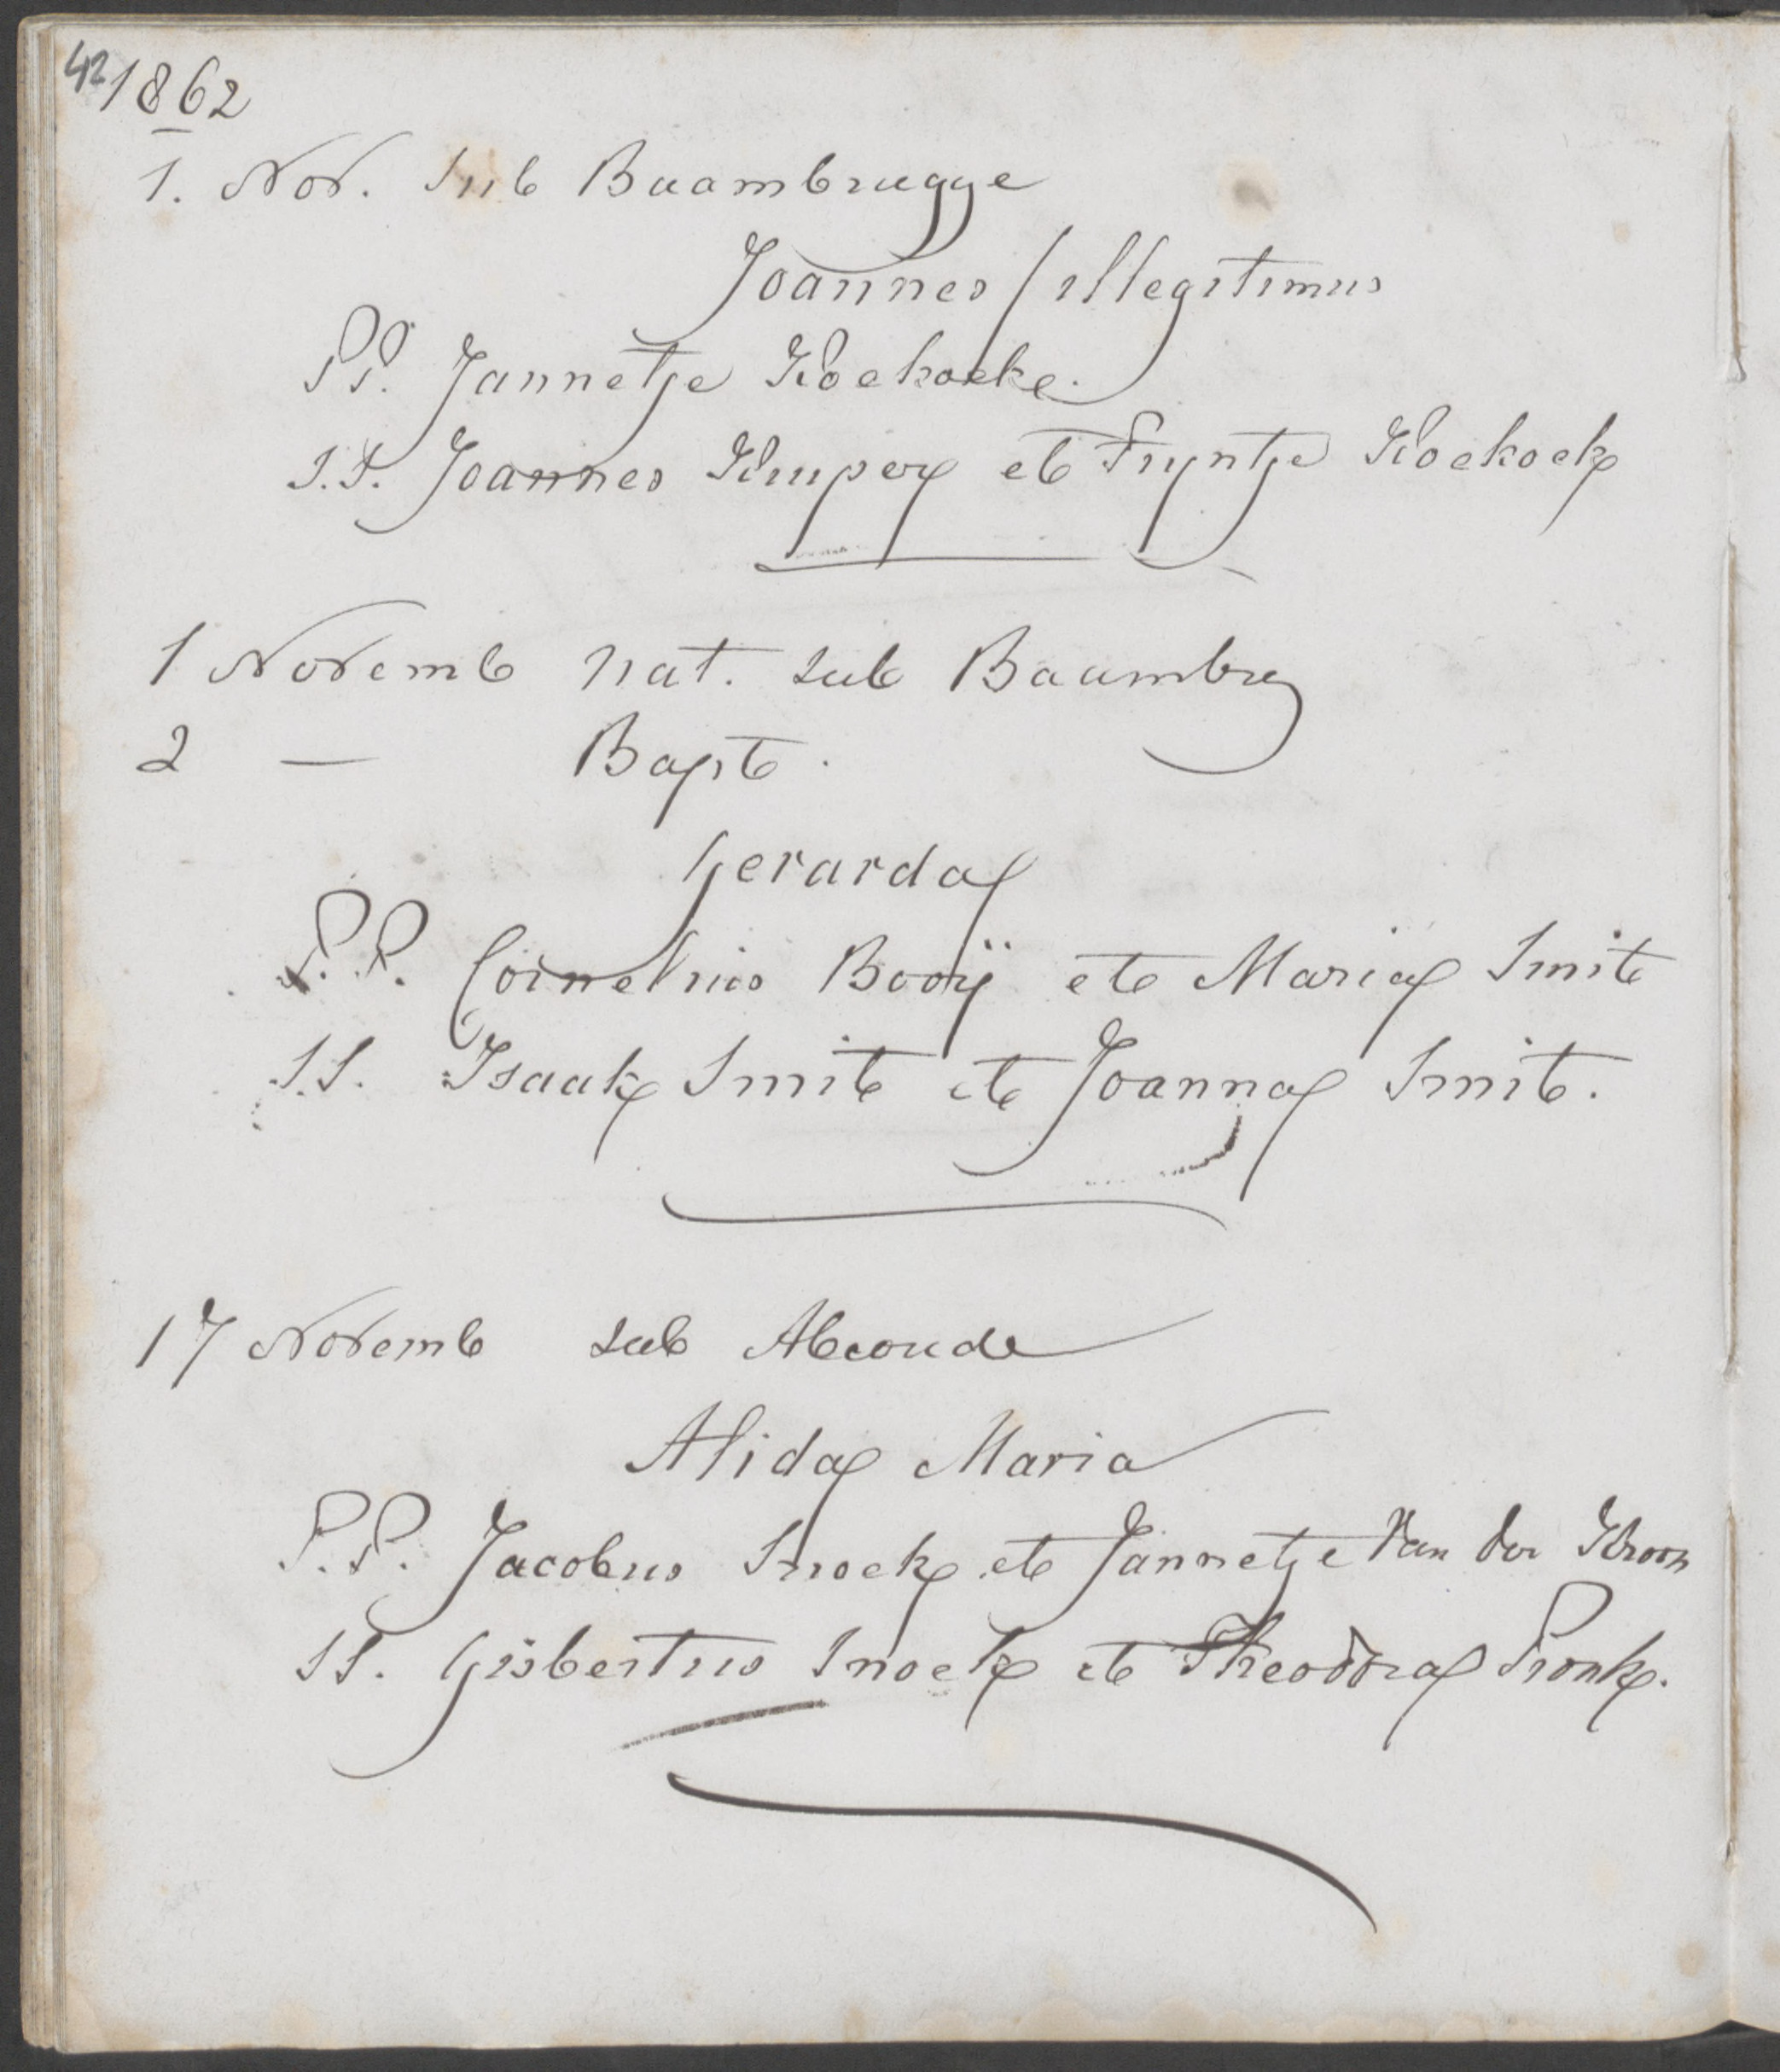 42
1862
1. Nov. sub Baambrugge
Joannes / illegitimus
PP. Jannetje Koekoek.
S.S. Joannes Kuyper et Fryntje Koekoek
1 Novemb nat. sub Baambrug
2 — Bapt.
Gerarda
P.P. Cornelius Booÿ et Maria Smit
S.S. Isaak Smit et Joanna Smit.
17 Novemb sub Abcoude
Alida Maria
P.P. Jacobus Snoek et Jannetje van der Kroon
SS. Gisbertus Snoek et Theodora Pronk.